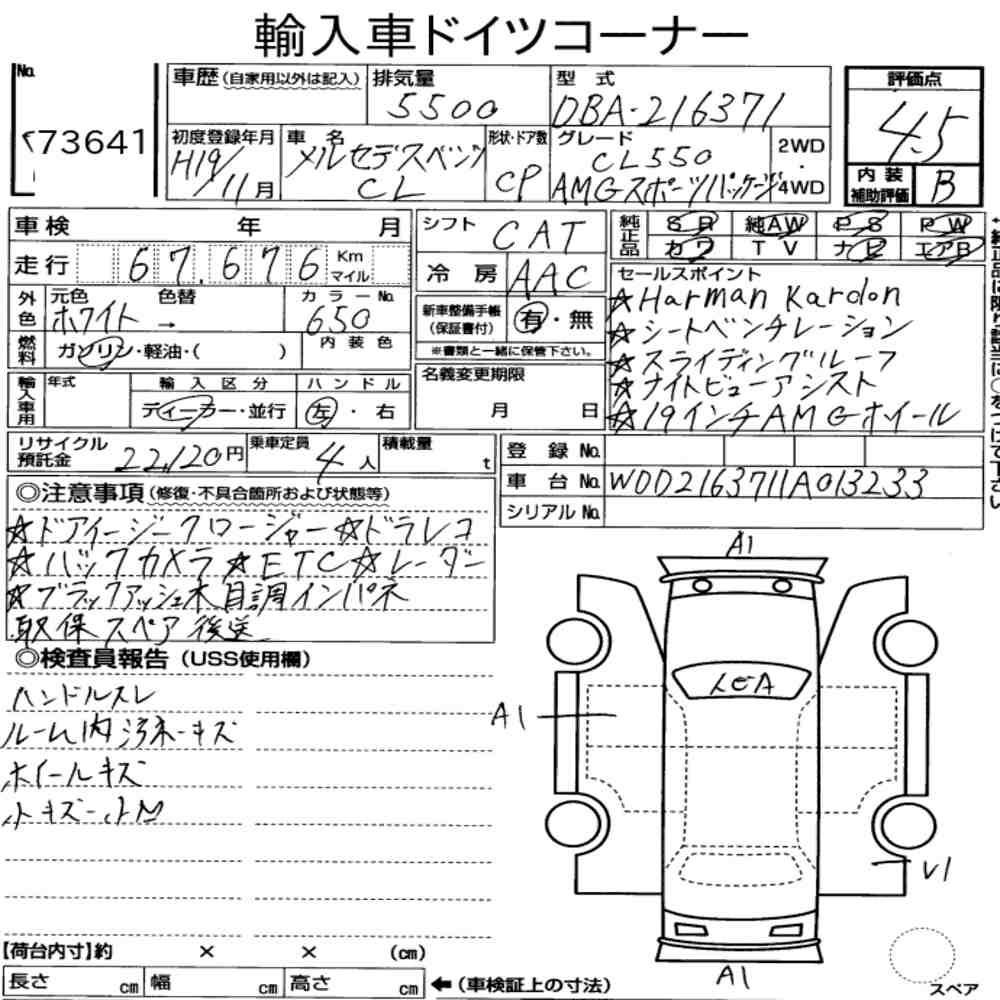 輸入車ドイツコーナー
No.
73641
車歴(自家用以外は記入)
排気量
5500
型式
DBA-216371
評価点
4.5
初度登録年月
H19/11月
車名
メルセデスベンツ
CL
形状・ドア数
CP
グレード
CL550
AMGスポーツパッケージ
2WD
・
4WD
内装
補助評価
B
車検 年 月
シフト
CAT
純正品
SR 純AW PS PW
カワ TV ナビ エアB
走行 67,676 Km マイル
冷房 AAC
セールスポイント
☆Harman Kardon
☆シートベンチレーション
☆スライディングルーフ
☆ナイトビューアシスト
☆19インチAMGホイール
外色
元色 色替
ホワイト→
カラーNo.
650
内装色
新車整備手帳
(保証書付)
有・無
※書類と一緒に保管下さい。
燃料
ガソリン・軽油・( )
名義変更期限
月 日
輸入車用
年式
輸入区分
ディーカー・並行
ハンドル
左・右
リサイクル
預託金
22,120円
乗車定員
4人
積載量
t
登録No.
車台No. WDD2163711A013233
シリアルNo.
◎注意事項(修復・不具合箇所および状態等)
☆ドアイージークロージャー☆ドラレコ
☆バックカメラ☆ETC☆レーダー
☆ブラックアッシュ木目調インパネ
取保スペア後送
◎検査員報告(USS使用欄)
ハンドルスレ
ルーム内汚れキズ
ホイールキズ
小キズ小凹
A1
A1
V1
A1
スペア
【荷台内寸】約 × × (cm)
長さ cm 幅 cm 高さ cm
←(車検証上の寸法)